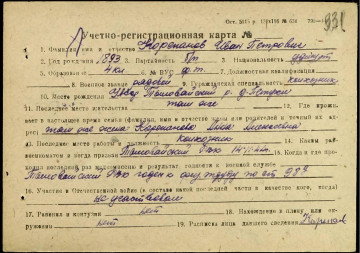 931
Учетно-регистрационная карта №
1. Фамилия имя и отчество Корепанов Иван Петрович
2. Год рождения 1893 3. Партийность б/п 4. Национальность удмурт
5. Образование 4 кл 6. № ВУС 7. Должностная квалификация
8. Военное звание рядовой 9. Гражданская специальность колхозник
10. Место рождения Тыловайский р.
11. Последнее место жительства там же 12. Где прожи-
вает в настоящее время семья (фамилия, имя и отчество жены или родителей и точный их ад-
рес) там же жена Корепанова
13. Последнее место работы и должность Колхозник 14. Каким рай-
военкоматом и когда призван Тыловайский РВК 15. Когда и где про-
ходил последний раз и результат, годности к военной службе
Тыловайский РВК годен к физ. труду по ст
16. Участие в Отечественной войне (в составе какой последней части, в качестве кого, когда)
не участвовал
17. Ранения и контузии нет 18. Нахождение в плену или ок-
ружении нет 19. Расписка лица давшего сведения